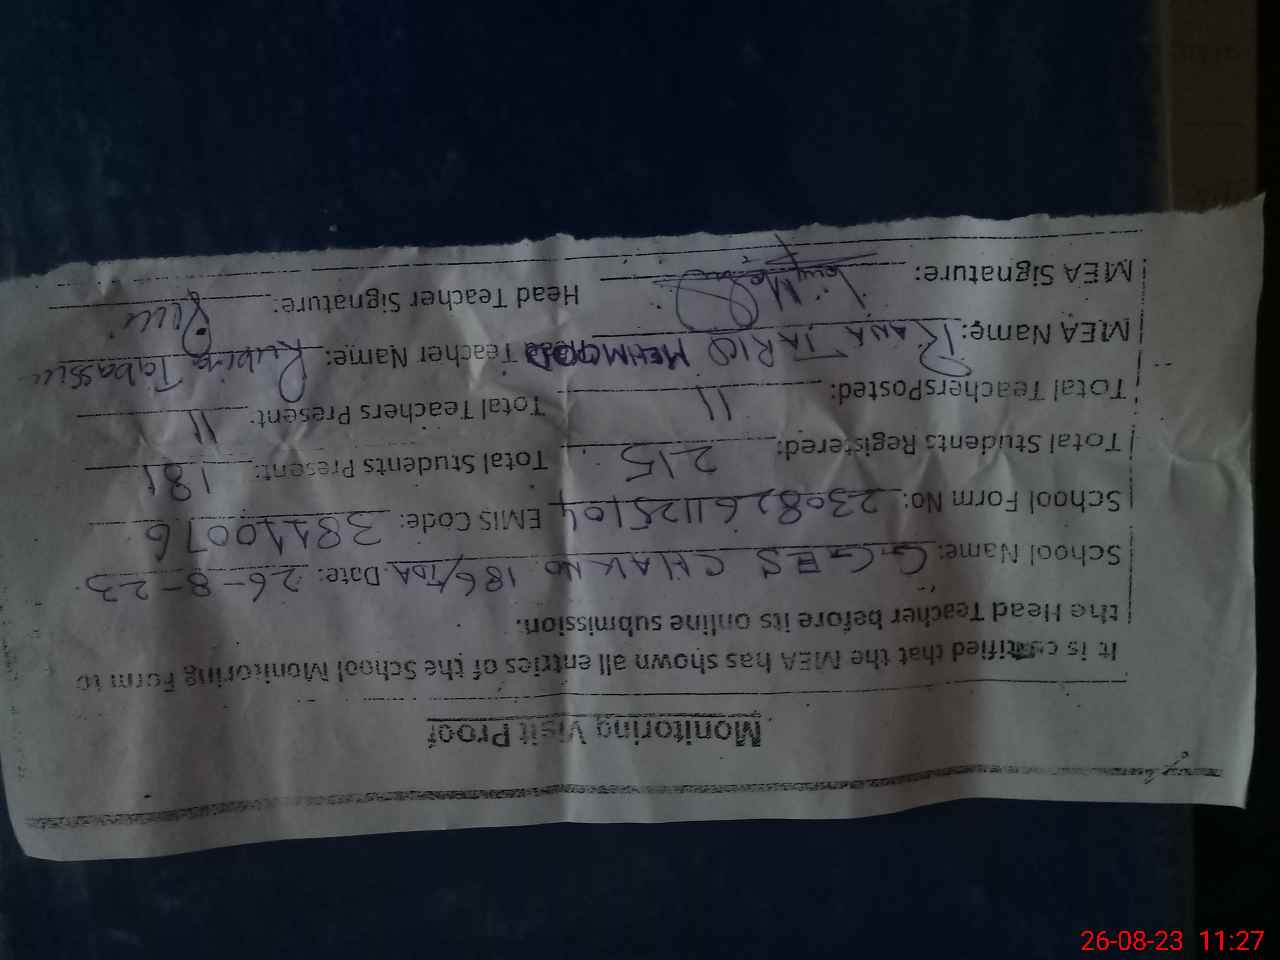 Monitoring Visit Proof
It is certified that the MEA has shown all entries of the School Monitoring Form to
the Head Teacher before its online submission.
School Name: GGES CHAK NO 186/TDA Date: 26-8-23
School Form No: 2308261125104 EMIS Code: 38110076
Total Students Registered: 215 Total Students Present: 181
Total TeachersPosted: 11 Total Teachers Present: 11
MEA Name: RANA TARIQ MEHMOOD Teacher Name: Rubina Tabassum
MEA Signature: Head Teacher Signature:
26-08-23 11:27